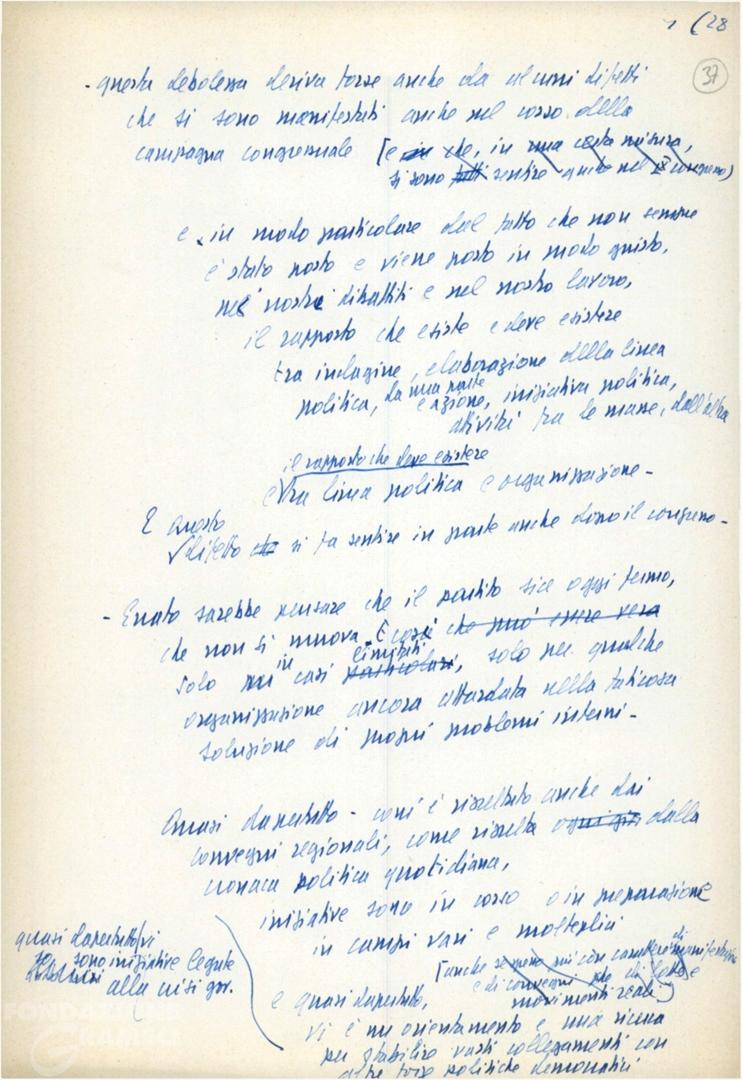 (28
37
- questa debolezza deriva forse anche da alcuni difetti
che si sono manifestati anche nel corso della
campagna congressuale [e che, in una certa misura,
si sono fatti sentire anche nel X congresso)
e in modo particolare dal fatto che non sempre
è stato posto e viene posto in modo giusto,
nei nostri dibattiti e nel nostro lavoro,
il rapporto che esiste e deve esistere
tra indagine, elaborazione della linea
politica, da una parte
e azione, iniziativa politica,
attività tra le masse, dall'altra
il rapporto che deve esistere
e tra linea politica e organizzazione -
E questo
difetto che si fa sentire in parte anche dopo il congresso -
- Errato sarebbe pensare che il partito sia oggi fermo,
che non si muova. È così che può essere vera
limitati
solo in casi particolari, solo per qualche
organizzazione ancora attardata nella faticosa
soluzione di propri problemi interni -
Quasi dapertutto - com'è risultato anche dai
convegni regionali, come risulta ogni gi dalla
cronaca politica quotidiana,
iniziative sono in corso o in preparazione
in campi vari e molteplici
[anche se sono più con carattere di manifestazioni
e di convegni che di lotte e
movimenti reali]
quasi dapertutto vi
sono iniziative legate
alla crisi gov.
e quasi dapertutto,
vi è un orientamento e una ricerca
per stabilire vasti collegamenti con
altre forze politiche democratici
FONDAZIONE
GRAMSCI